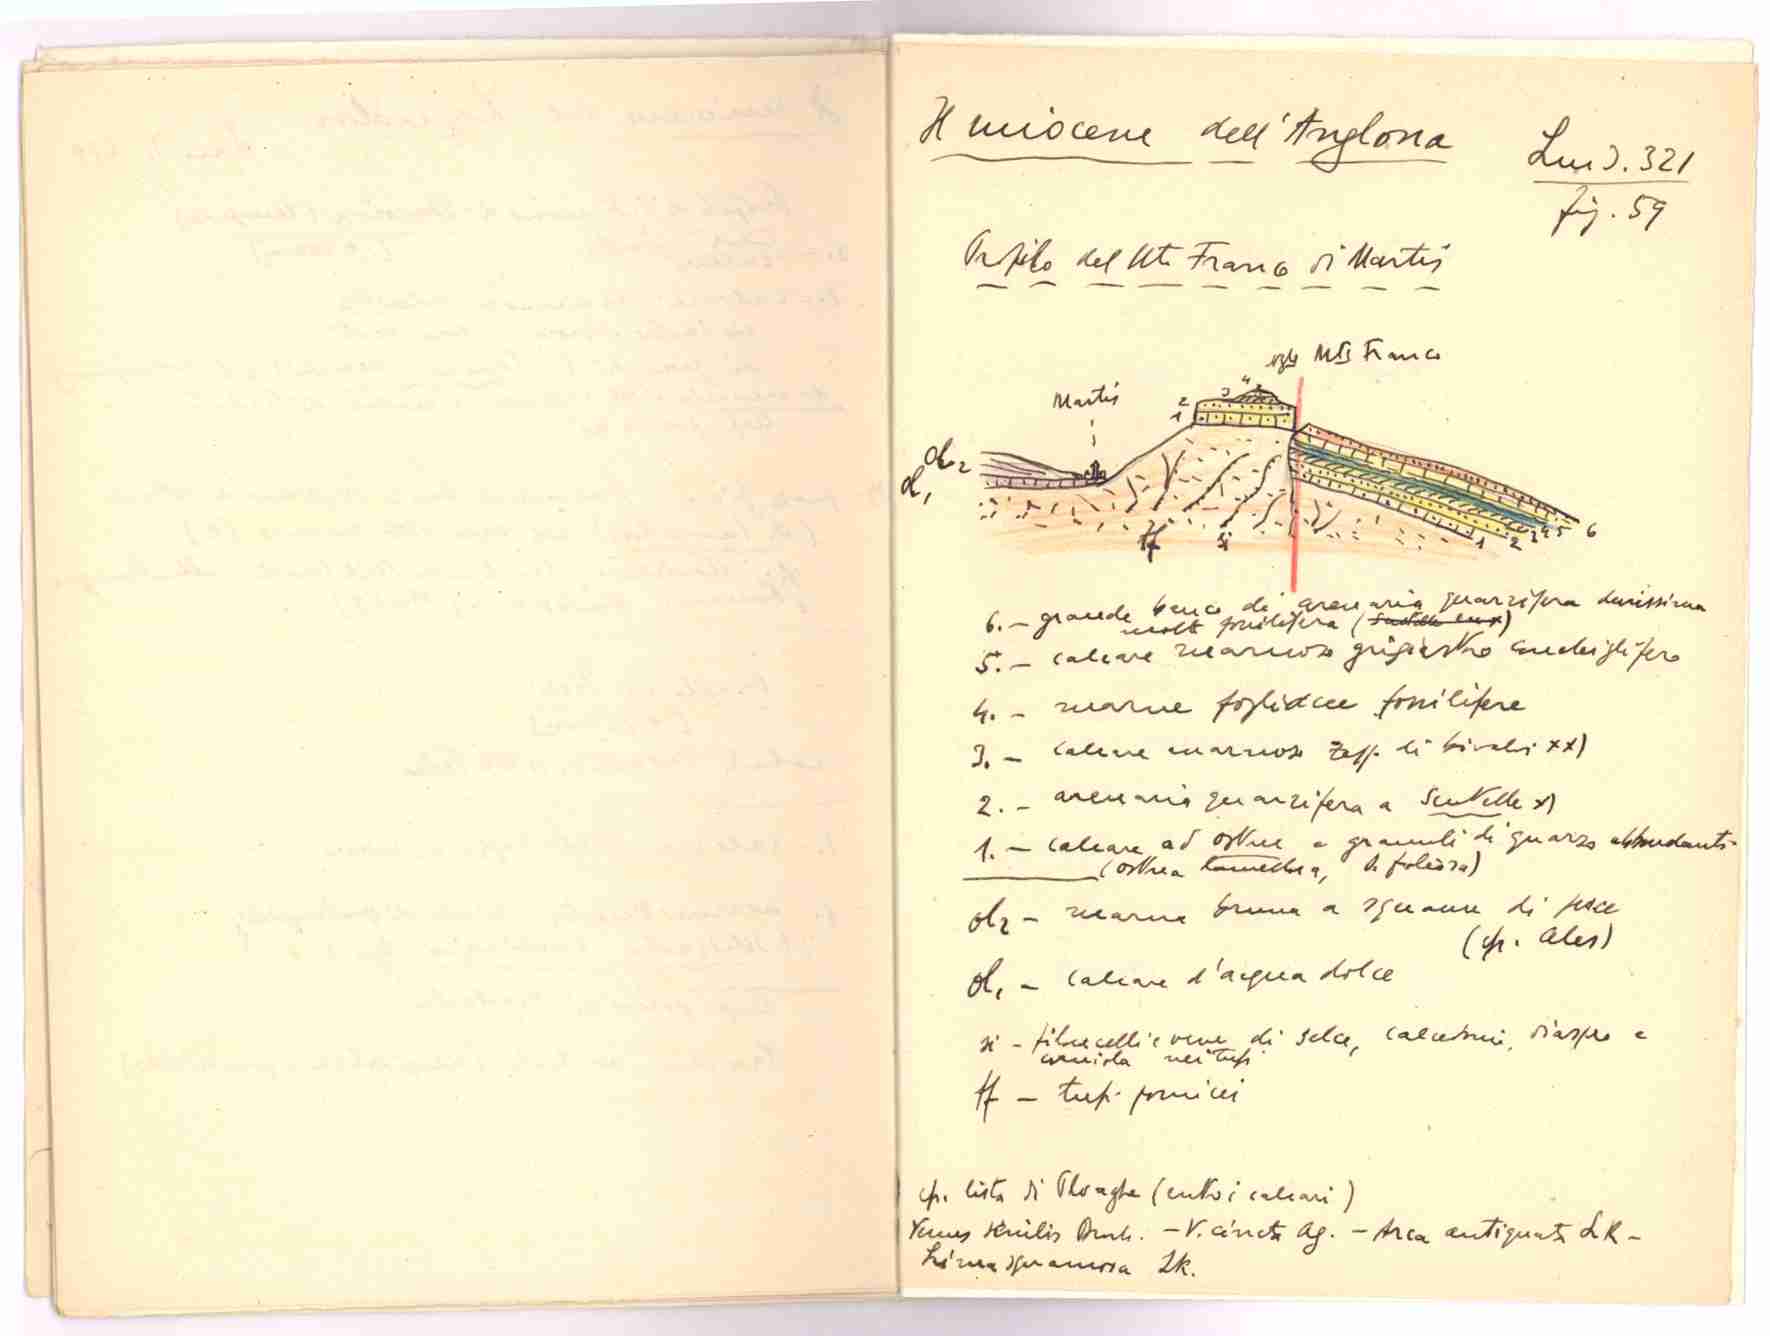 Il miocene dell'Anglona
Lud. 321
fig. 59
Profilo del Mte Franco di Martis
Mte Franco
Martis
4
3
2
1
ol2
ol1
tf
si
1 2 3 4 5 6
6. — grande banco di arenaria quarzifera durissima
molto fossilifera (
5. — calcare marnoso grigiastro conchiglifero
4. — marne fogliacee fossilifere
3. — calcare marnoso zepp. di bivalvi xx)
2. — arenaria quarzifera a Scutelle x)
1. — calcare ad ostree e granuli di quarzo abbondanti
(ostrea lamellosa, O. foliosa)
ol2 — marna bruna a squame di pesce
(cfr. Ales)
ol1 — calcare d'acqua dolce
si — filoncelli e vene di selce, calcedonio, diaspro e
corniola nei tufi
tf — tufi pomicei
cfr. lista di Ploaghe (entro i calcari)
Venus Broch. — V. cincta Ag. — Arca antiquata LK —
Lima squamosa Lk.